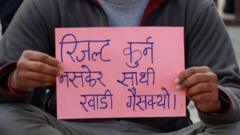 रिजल्ट कुर्न
नसकेर साथी
खाडी गैसक्यो।